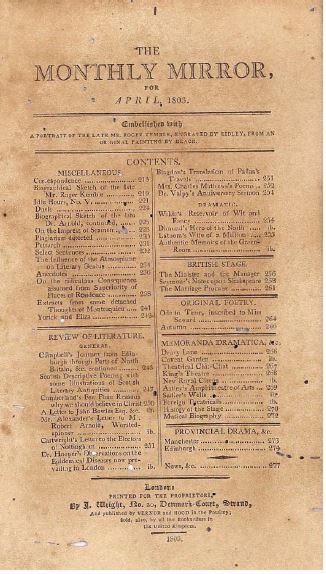 THE
MONTHLY MIRROR,
FOR
APRIL, 1803.
Embellished with
A PORTRAIT OF THE LATE MR. ROGER KEMBLE, ENGRAVED BY RIDLEY, FROM AN
ORIGINAL PAINTING BY
CONTENTS.
MISCELLANEOUS.
Correspondence 218
Biographical Sketch of the late
Mr. Roger Kemble 219
Idle Hours, No. V. 221
Death 224
Biographical Sketch of the late
Dr. Arnold, continued 225
On the Impiety of
Plagiarism detected
Petrarch 231
Select Sentences 232
The Influence of the Atmosphere
on Literary Genius 234
Anecdotes 236
On the ridiculous Consequence
assumed from Superiority of
Places of Residence 238
Extracts from some detached
Thoughts of Montesquieu 241
Yorick and Eliza
REVIEW OF LITERATURE.
GENERAL.
Campbell's Journey from Edin-
burgh through Parts of North
Britain, &c. continued 245
Scotish Descriptive Poems; with
some Illustrations of Scotish
Literary Antiquities 247
Cumberland's Few Plain Reasons
why we should believe in Christ 250
A Letter to John Bowles Esq. &c. ib.
Mr. Alexander's Letter to M.
Robert Arnold, Worsted-
spinner ib.
Cartwright's Letter to the Electors
of Nottingham 251
Dr. Hooper's Observations on the
Epidemical Diseases now pre-
vailing in London ib.
Bingley's Translation of
Travels 251
Mrs. Charles Mathews's Poems 252
Dr. Valpy's Anniversary Sermon 254
DRAMATIC.
Wilkin's Reservoir of Wit and
Dimond's Hero of the North ib.
Latham's Wife of a Million 255
Authentic Memoirs of the Green-
Room ib.
BRITISH STAGE.
The Minister and the Manager 256
Seymour's Notes upon Shakspeare 258
The Marriage Promise 261
ORIGINAL POETRY.
Ode to Time, inscribed to Miss
Seward 264
Autumn
MEMORANDA DRAMATICA, &c.
Drury Lane 266
Covent Garden ib.
Theatrical Chit-Chat 267
King's Theatre 268
New Royal Circus ib.
Astley's Amphitheatre of Arts 269
Sadler's Wells ib.
Foreign Theatricals ib.
History of the Stage 270
Musical Biography 272
PROVINCIAL DRAMA, &c.
Manchester 273
Edinburgh
News, &c. 277
London:
PRINTED FOR THE PROPRIETORS,
By J. Wright, No. 20, Denmark-Court, Strand,
And published by VERNOR and HOOD in the Poultry;
sold, also, by all the Booksellers in
the United Kingdom.
1803.